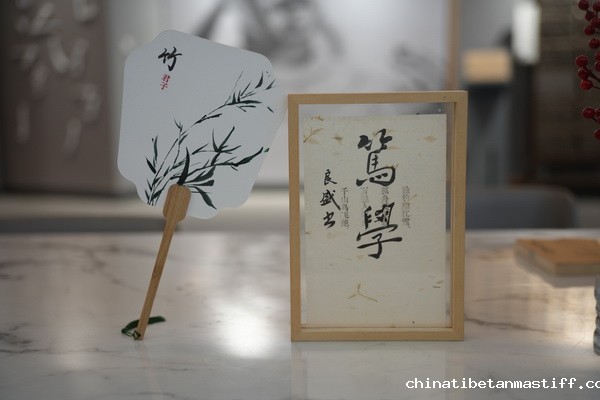 竹
君子
篤學
良盛書
chinatibetanmastiff.co